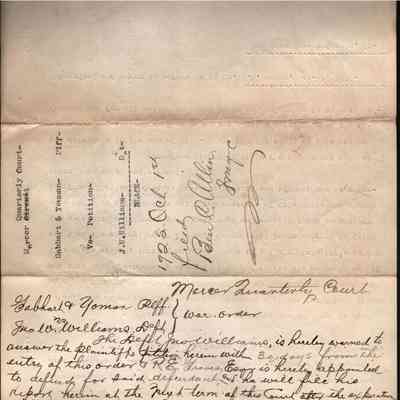 Mercer Quarterly Court-
Gabhart & Yeman- Piff-
Vs- Petition-
J.W.Williams- D-t-
1923 Oct 1st
filed
Ben C Allin
Jmqc
Mercer Quarterly Court
Gabhart & Yoman Plff
War. order
Jno W. Williams Deft
The Deft Jno Williams, is hereby warned to
answer the Plaintiffs petition herein with 30 days from the
entry of this order & R E Esqr is hereby appointed
to defend for said defendant, & he will file his
report herein at the term of this Court after the expiration